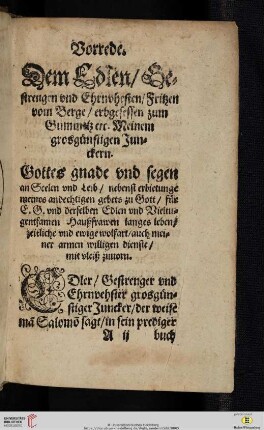 Vorrede.
Dem Edlen/ Ge-
strengen vnd Ehrnvhesten/ Fritzen
vom Berge/ erbgesessen zum
etc. Meinem
grosgünstigen Jun-
ckern.
Gottes gnade vnd segen
an Seelen vnd Leib/ nebenst erbietunge
meines andechtigen gebets zu Gott/ für
E. G. vnd derselben Edlen vnd Vieltu-
gentsamen Hausfrawen langes leben/
zeitliche vnd ewige wolfart/ auch mei-
ner armen willigen dienste/
mit vleiß zuuorn.
EDler/ Gestrenger vnd
Ehrnvehster grosgün-
stiger Juncker/ der weise
mā Salomō sagt/ in sein prediger
A ij buch